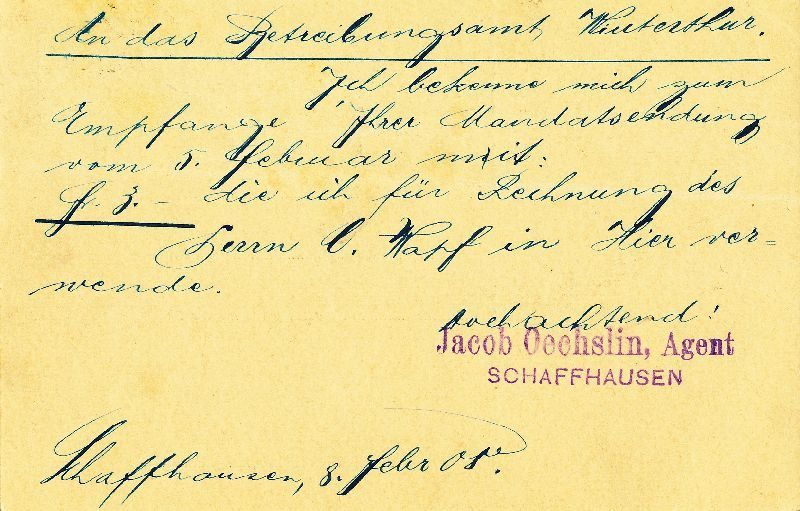 An das Betreibungsamt, Winterthur.
Ich bekenne mich zum
Empfange Ihrer Mandatsendung
vom 5. Februar mit:
fr. 3. - die ich für Rechnung des
Herrn C. Wapf in Hier ver=
wende.
Hochachtend!
Jacob Oechslin, Agent
SCHAFFHAUSEN
Schaffhausen, 8. Febr 05.